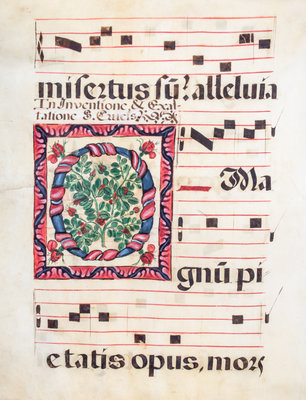 misertus sũ? alleluia
In Inventione, & Exal-
tatione S. Crucis
O Ma
gnũ pi
etatis opus, mors